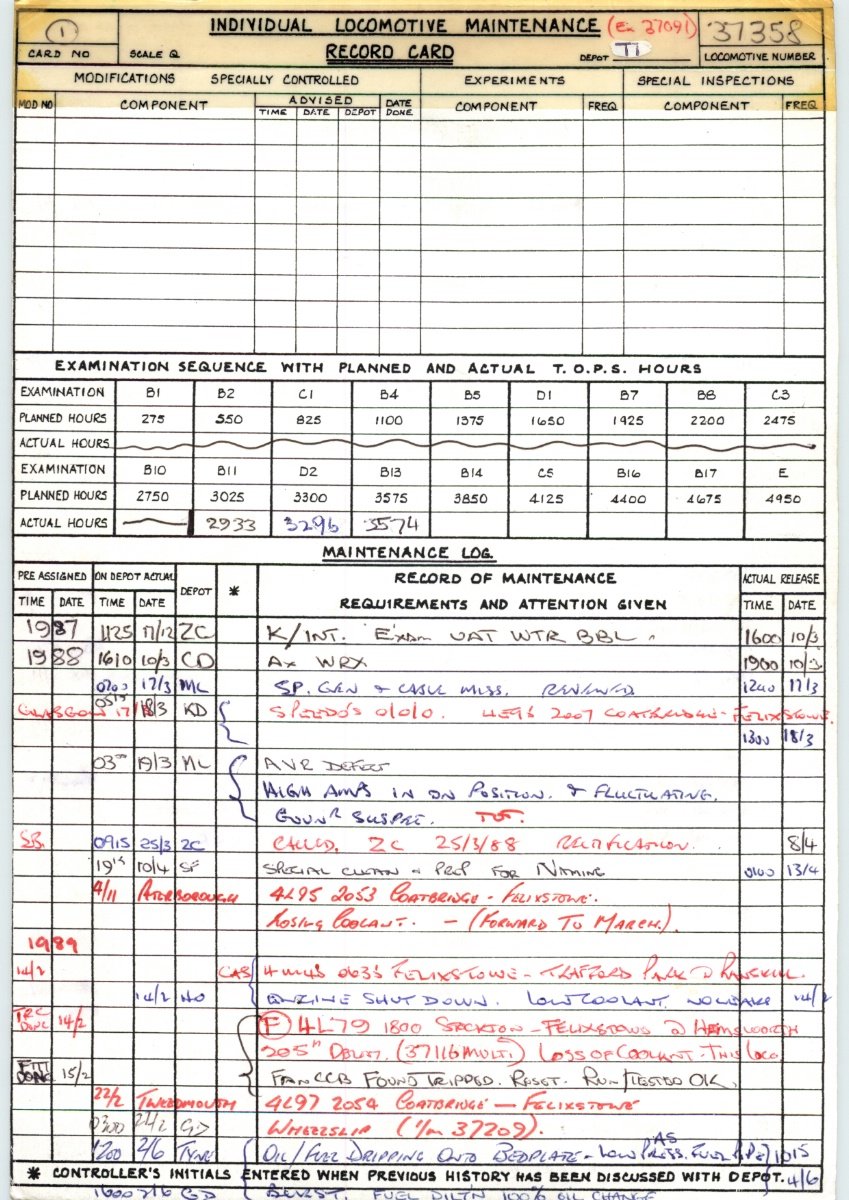 INDIVIDUAL LOCOMOTIVE MAINTENANCE (Ex 37091) 37358
1 RECORD CARD TI
CARD NO SCALE Q DEPOT LOCOMOTIVE NUMBER
MODIFICATIONS SPECIALLY CONTROLLED EXPERIMENTS SPECIAL INSPECTIONS
MOD NO COMPONENT ADVISED DATE DONE. COMPONENT FREQ. COMPONENT FREQ.
TIME DATE DEPOT
EXAMINATION SEQUENCE WITH PLANNED AND ACTUAL T.O.P.S. HOURS
EXAMINATION B1 B2 C1 B4 B5 D1 B7 B8 C3
PLANNED HOURS 275 550 825 1100 1375 1650 1925 2200 2475
ACTUAL HOURS
EXAMINATION B10 B11 D2 B13 B14 C5 B16 B17 E
PLANNED HOURS 2750 3025 3300 3575 3850 4125 4400 4675 4950
ACTUAL HOURS 2933 3296 3574
MAINTENANCE LOG.
PRE ASSIGNED ON DEPOT ACTUAL DEPOT * RECORD OF MAINTENANCE ACTUAL RELEASE
TIME DATE TIME DATE REQUIREMENTS AND ATTENTION GIVEN TIME DATE
1987 1125 17/12 ZC K/INT. Exam VAT WTR BBL 1600 10/3
1988 1610 10/3 CD Ax WRX 1900 10/3
0700 17/3 ML SP. GEN & CABLE MISS. RENEWED 1240 17/3
GLASGOW 17/3 0515 18/3 KD SPEEDO'S 0/0/0. 4E98 2007 COATBRIDGE - FELIXSTOWE.
1300 18/3
03 19/3 ML AVR DEFECT
HIGH AMPS IN ON POSITION. & FLUCTUATING.
GOVNR SUSPECT. TOF.
SB. 0915 25/3 ZC CALLED. ZC 25/3/88 RECTIFICATION. 8/4
19 10/4 SF SPECIAL CLEAN & PREP FOR NAMING 0100 13/4
4/11 4L95 2053 COATBRIDGE - FELIXSTOWE.
LOSING COOLANT. - (FORWARD TO MARCH).
1989
14/2 CAS 4M48 0633 FELIXSTOWE - TRAFFORD PARK @ RANSKILL.
14/2 ENGINE SHUT DOWN. LOW COOLANT. NO LEAKS 14/2
DONE 14/2 F 4L79 1800 STOCKTON - FELIXSTOWE @ HEMSWORTH
205" DBLIT. (37116 MULTI) LOSS OF COOLANT - THIS LOCO
FTTI DONE 15/2 FAN CCB FOUND TRIPPED. RESET. RUN/TESTED OK.
22/2 TWEEDMOUTH 4L97 2054 COATBRIDGE - FELIXSTOWE
0300 24/2 GD WHEELSLIP (I/M 37209).
1200 2/6 TYNE OIL/FUEL DRIPPING ONTO BEDPLATE - LOW PRESS. FUEL PIPE 1015
AS
* CONTROLLER'S INITIALS ENTERED WHEN PREVIOUS HISTORY HAS BEEN DISCUSSED WITH DEPOT. 4/6
1600 2/6 GD BURST. FUEL DILTN 100% OIL CHANGE